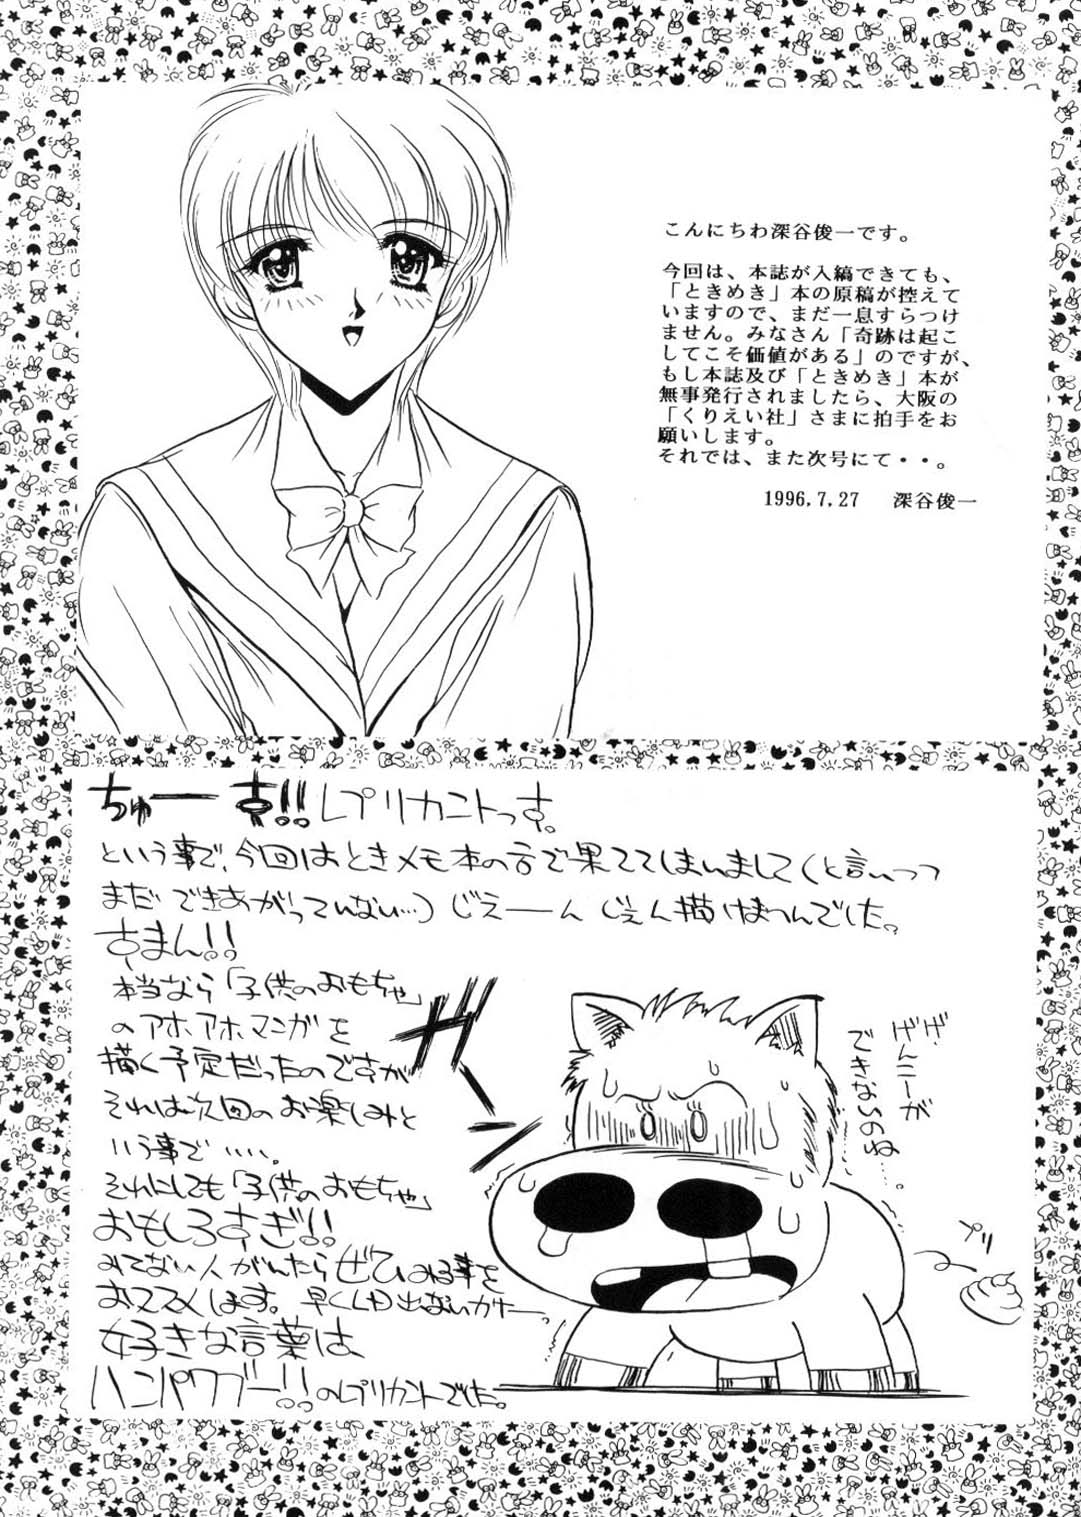 こんにちわ深谷俊一です。
今回は、本誌が入縞できても、
「ときめき」本の原稿が控えて
いますので、まだ一息すらつけ
ません。みなさん「奇跡は起こ
してこそ価値がある」のですが、
もし本誌及び「ときめき」本が
無事発行されましたら、大阪の
「くりえい社」さまに拍手をお
願いします。
それでは、また次号にて・・。
1996,7,27 深谷俊一
ちゅーす!!レプリカントっす。
という事で、今回はときメモ本の方で果ててしまいまして(と言いつつ
まだできあがっていない…)じえーんじぇん描けまつんでした。
すまん!!
本当なら「子供のおもちゃ」
のアホアホマンガを
描く予定だったのですが
それは次回のお楽しみと
いう事で・・・・。
それにしても「子供のおもちゃ」
おもしろすぎ!!
みてない人がいたらぜひみる事を
おススメします。早くLD出ないカナー。
好きな言葉は
ハンパワブー!!のレプリカントでした。
ガーン
ゲ、
げんこーが
できないのね……。
プリ